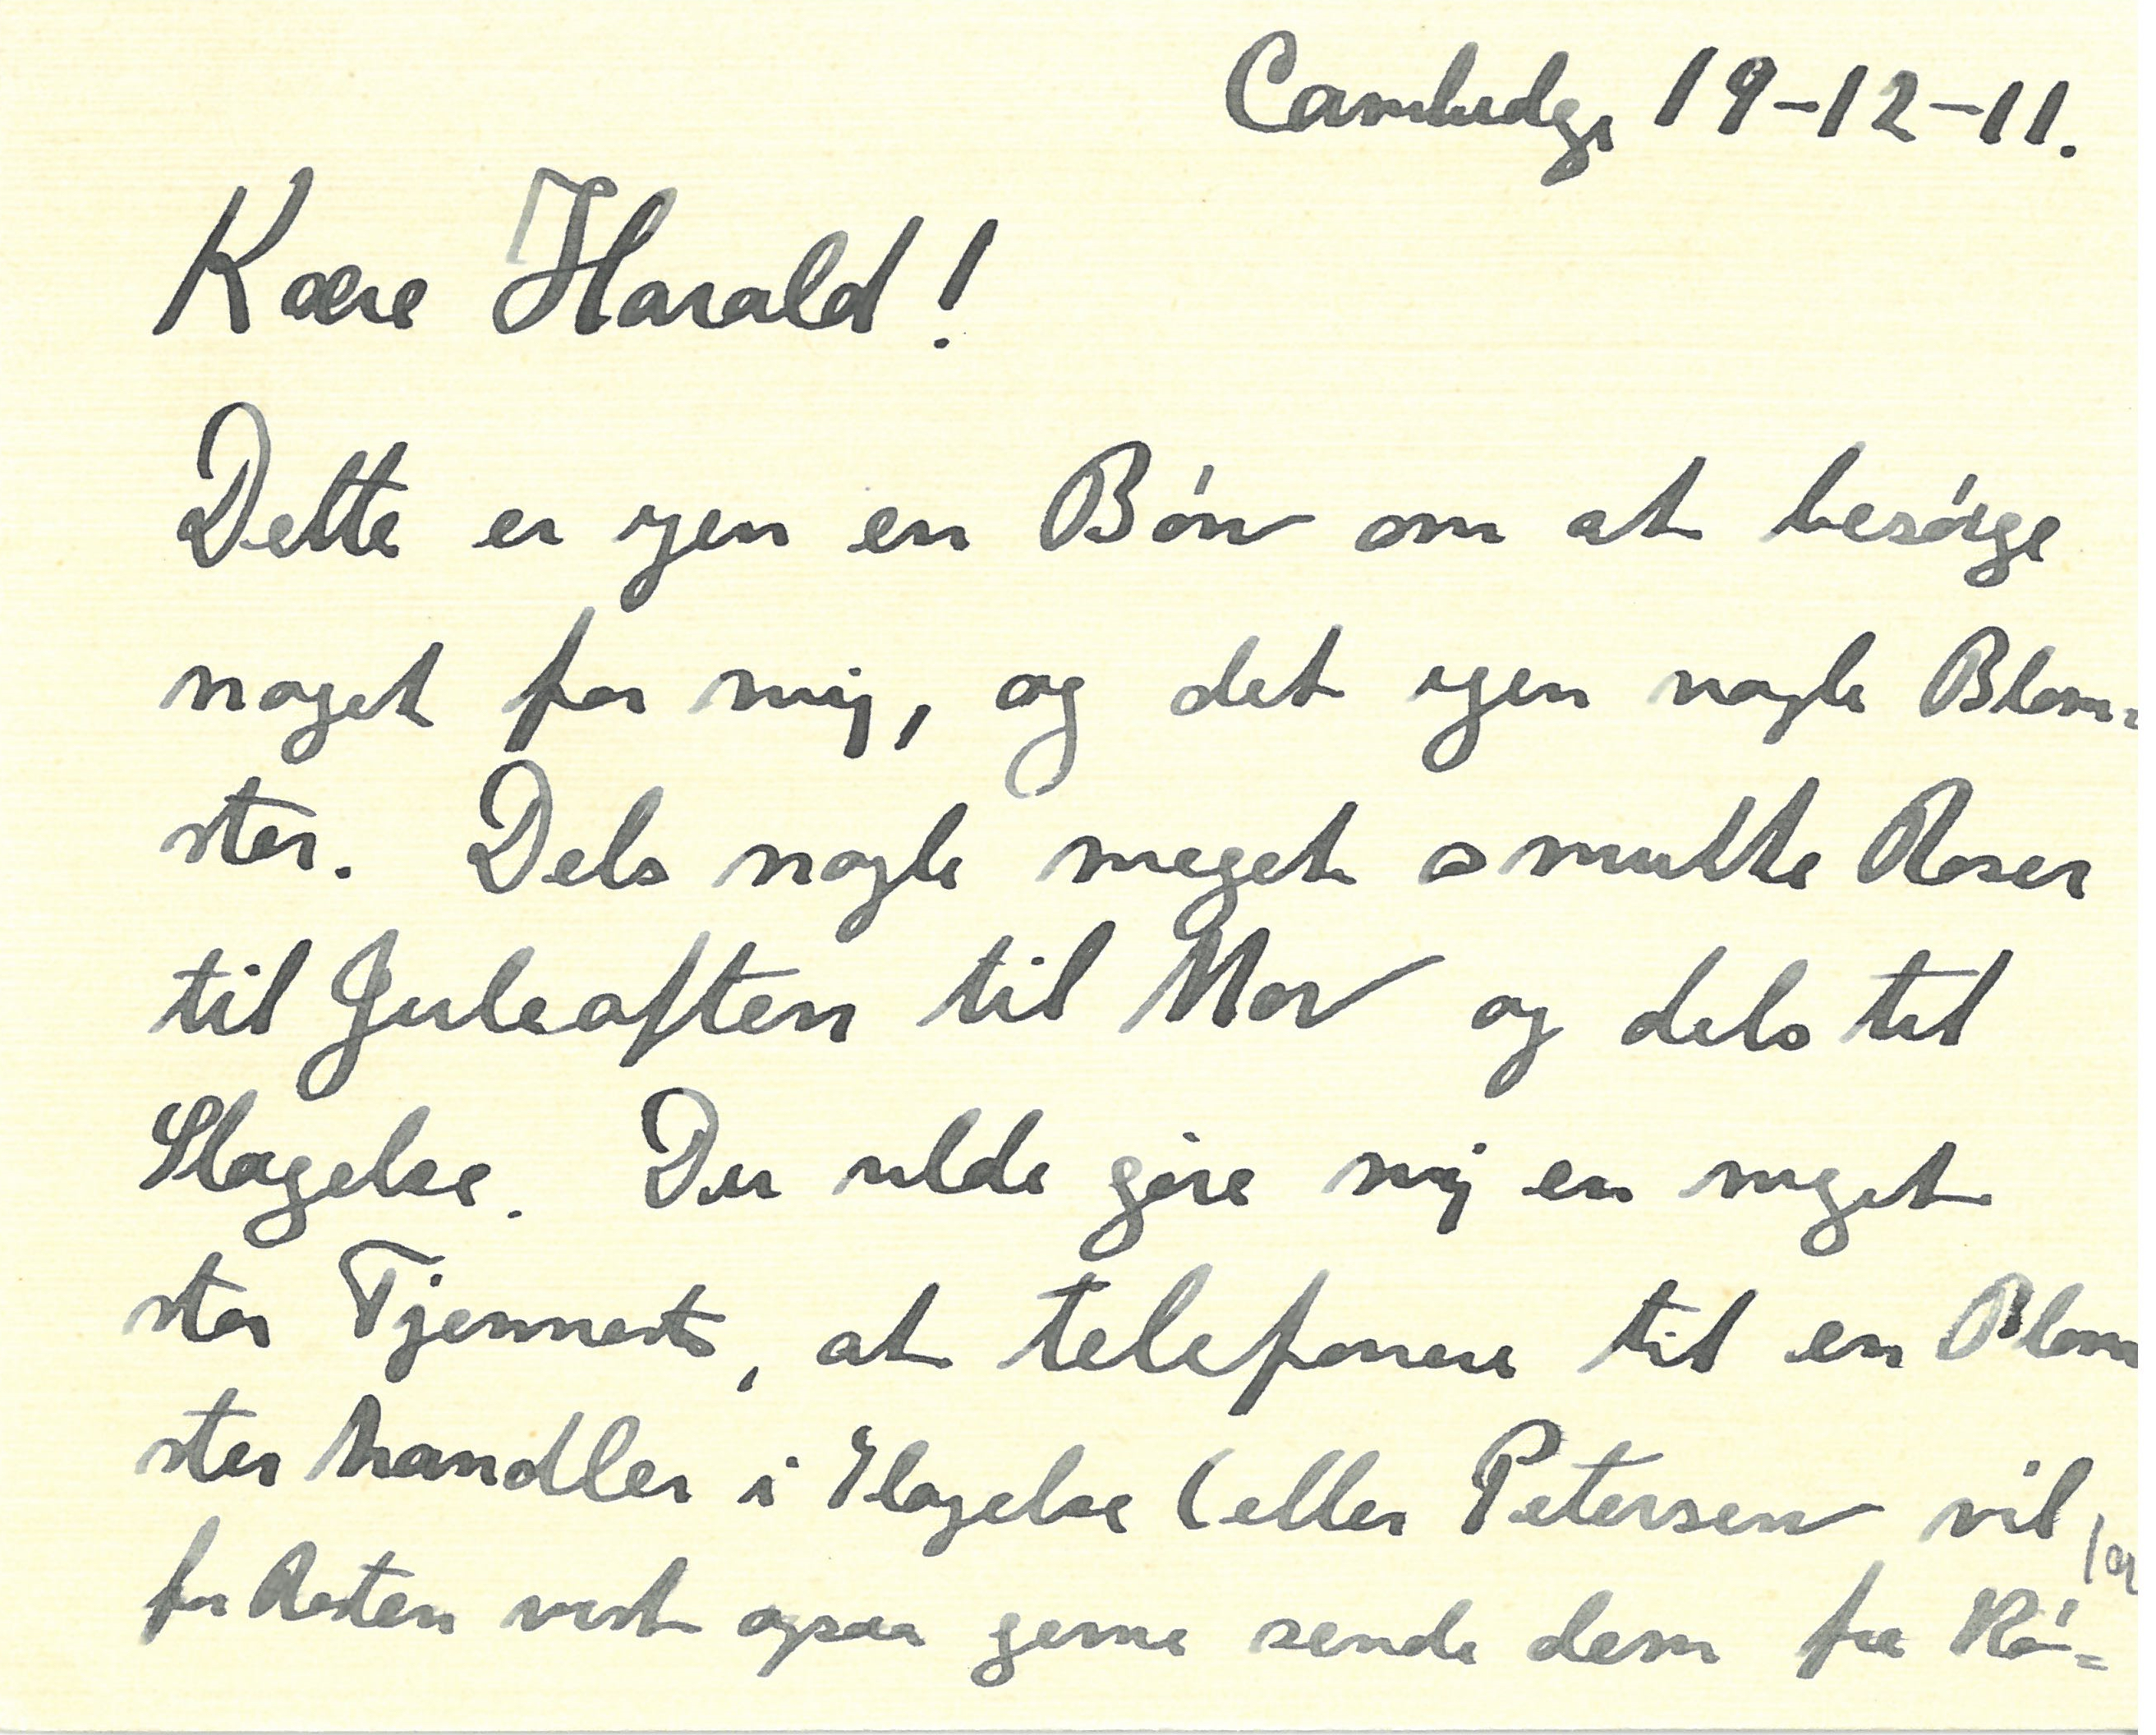 Cambridge 19-12-11.
Kære Harald!
Dette er igen en Bön om at besörge
noget for mig, og det igen nogle Blom=
ster. Dels nogle meget smukke Roser
til Juleaften til Mor og dels til
Slagelse. Du vilde göre mig en meget
stor Tjenneste, at telefonere til en Blom
sterhandler i Slagelse (eller Petersen vil
for Resten vist ogsaa gerne sende dem fra Kö=